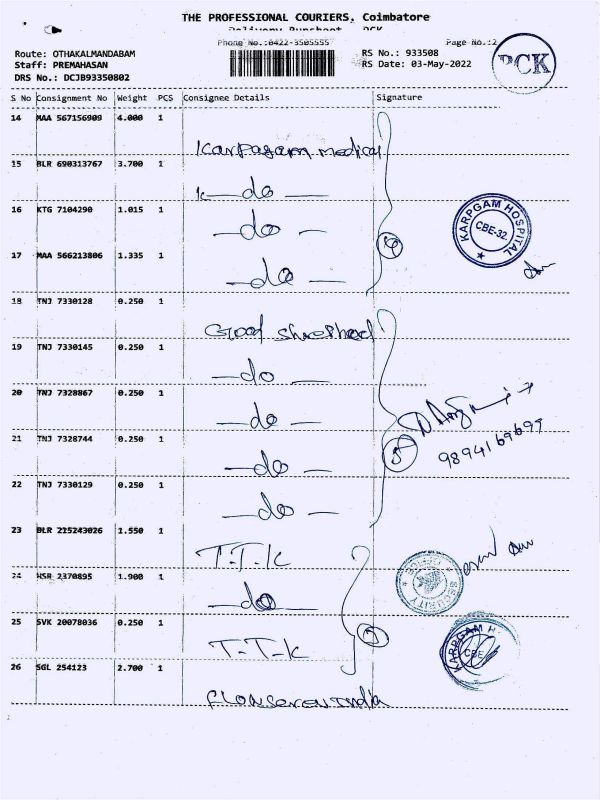 THE PROFESSIONAL COURIERS, Coimbatore
Delivery Runsheet PCK
Phone No.:0422-3505555 Page No.:2
Route: OTHAKALMANDABAM RS No.: 933508
Staff: PREMAHASAN RS Date: 03-May-2022
DRS No.: DCJB93350802
PCK
S No Consignment No Weight PCS Consignee Details Signature
14 MAA 567156909 4.000 1
Karpagam medical
15 BLR 690313767 3.700 1
do
16 KTG 7104290 1.015 1
do
KARPGAM HOSPITAL
CBE-32.
17 MAA 566213806 1.335 1
do
18 TNJ 7330128 0.250 1
Good
19 TNJ 7330145 0.250 1
do
20 TNJ 7328867 0.250 1
do
21 TNJ 7328744 0.250 1
9894169699
5
do
22 TNJ 7330129 0.250 1
do
23 BLR 215243026 1.550 1
T.T.K
24 HSR 2370895 1.900 1
SECURITY
do
25 SVK 20078036 0.250 1
T-T-K
KARPGAM H
CBE
26 SGL 254123 2.700 1
India